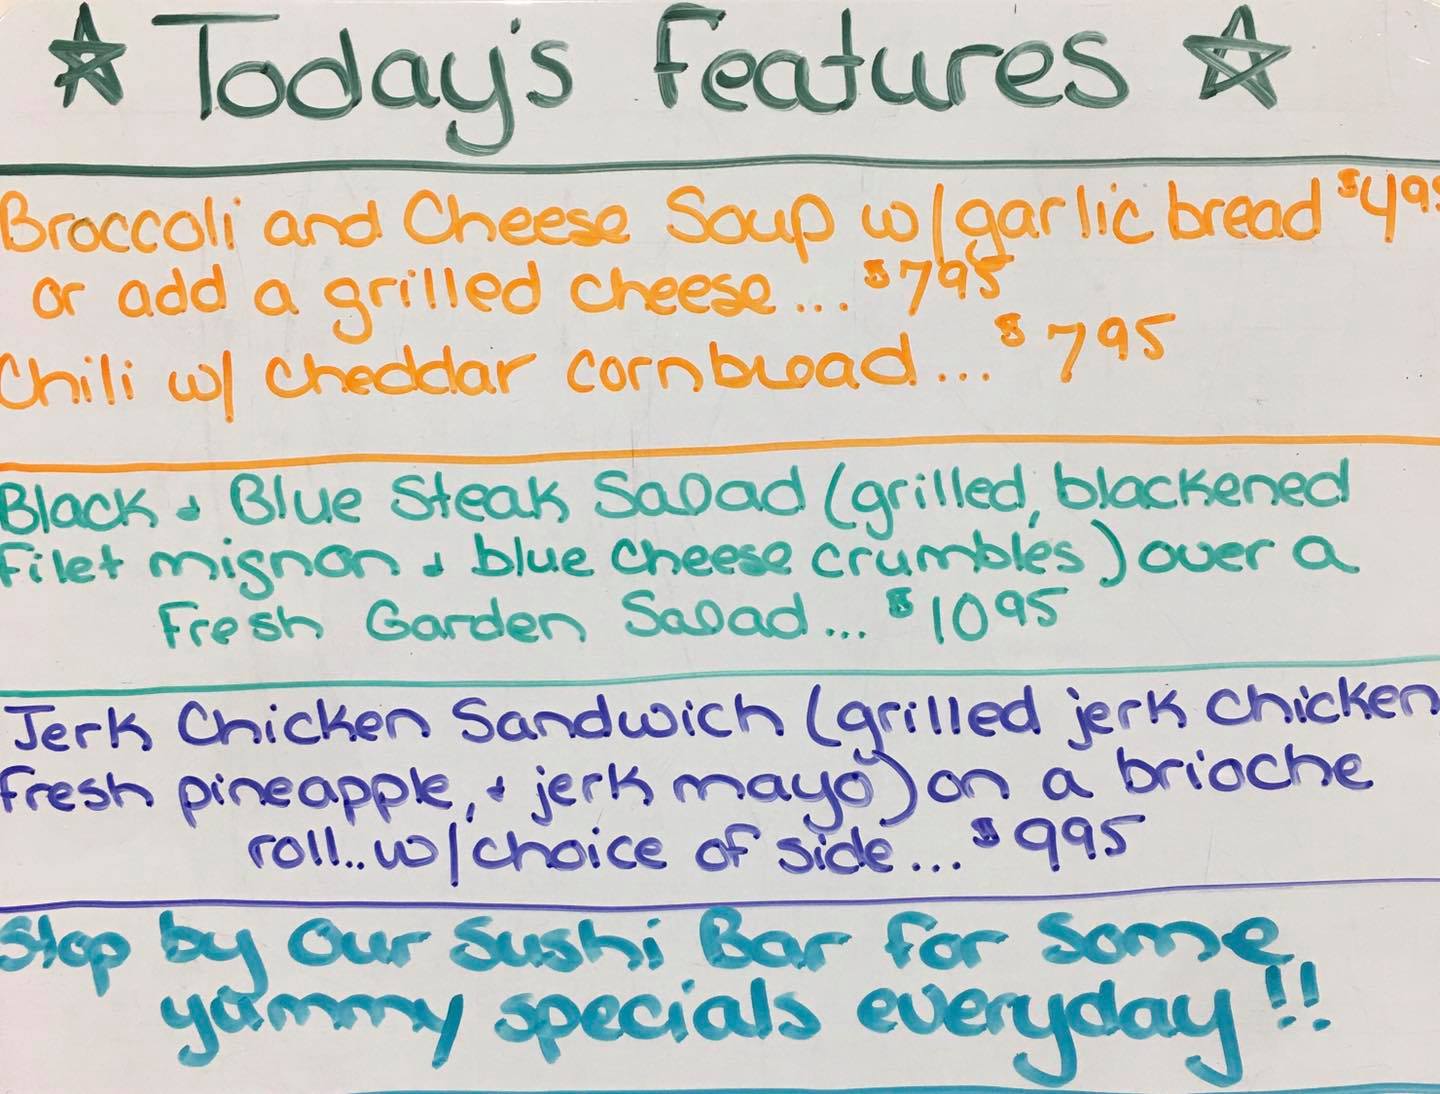 Today's Features
Broccoli and Cheese Soup w/garlic bread $495
or add a grilled cheese... $795
Chili w/ cheddar cornbread... $795
Black & Blue Steak Salad (grilled, blackened
filet mignon & blue cheese crumbles) over a
Fresh Garden Salad... $1095
Jerk Chicken Sandwich (grilled jerk chicken,
fresh pineapple, & jerk mayo) on a brioche
roll.. w/choice of side... $995
Stop by Our Sushi Bar for some
yummy specials everyday!!